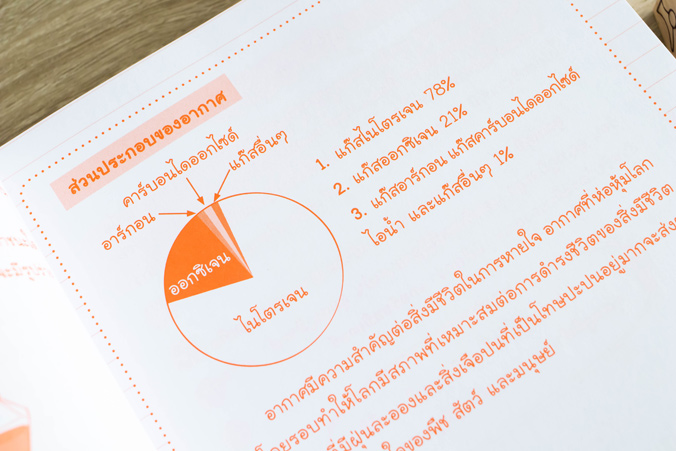 ส่วนประกอบของอากาศ
คาร์บอนไดออกไซด์
แก๊สอื่นๆ
อาร์กอน
ออกซิเจน
ไนโตรเจน
1. แก๊สไนโตรเจน 78%
2. แก๊สออกซิเจน 21%
3. แก๊สอาร์กอน แก๊สคาร์บอนไดออกไซด์
ไอน้ำ และแก๊สอื่นๆ 1%
อากาศมีความสำคัญต่อสิ่งมีชีวิตในการหายใจ อากาศที่ห่อหุ้มโลก
โดยรอบทำให้โลกมีสภาพที่เหมาะสมต่อการดำรงชีวิตของสิ่งมีชีวิต
ที่มีฝุ่นละอองและสิ่งเจือปนที่เป็นโทษปะปนอยู่มากจะส่ง
ของพืช สัตว์ และมนุษย์